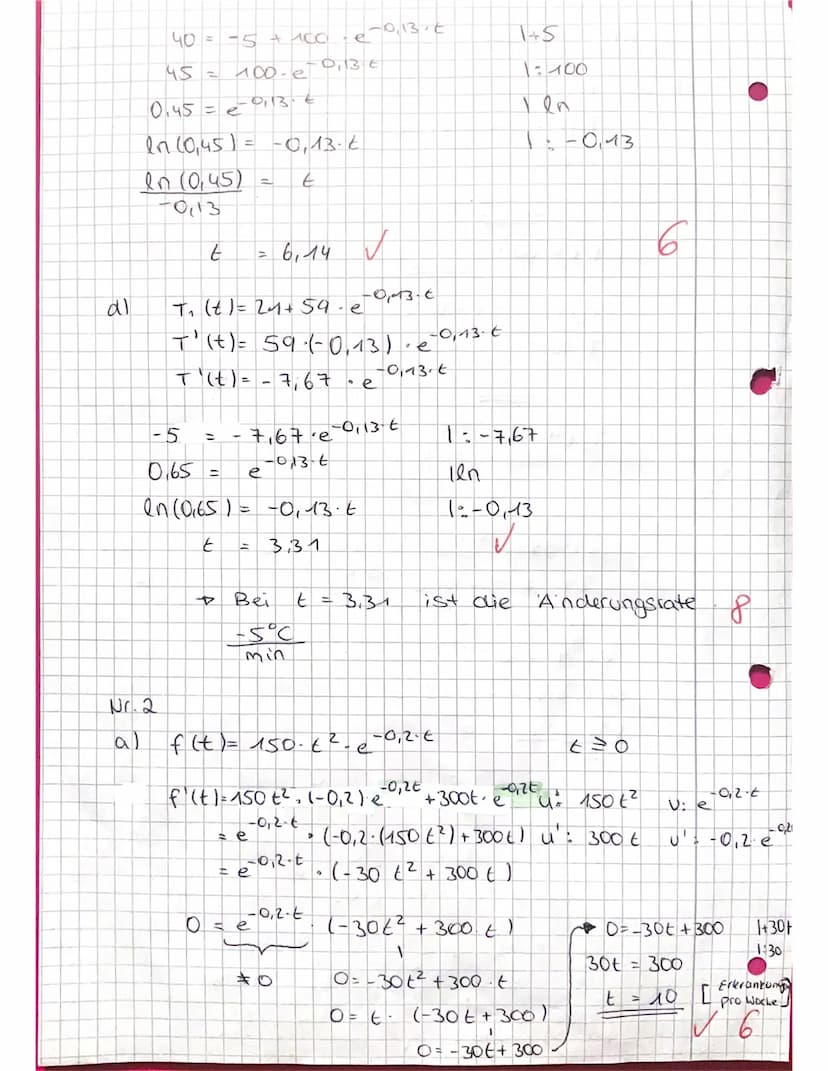 40 = -5 + 100 · e^-0,13·t |+5
45 = 100 · e^-0,13·t |:100
0,45 = e^-0,13·t | ln
ln(0,45) = -0,13·t | : -0,13
ln(0,45)/-0,13 = t
t = 6,14 ✓ 6
d) T₁(t) = 21 + 59 · e^-0,13·t
T'(t) = 59·(-0,13) · e^-0,13·t
T'(t) = -7,67 · e^-0,13·t
-5 = -7,67 · e^-0,13·t |: -7,67
0,65 = e^-0,13·t |ln
ln(0,65) = -0,13·t |: -0,13
t = 3,31 ✓
→ Bei t = 3,31 ist die Änderungsrate 8
-5°C/min
Nr. 2
a) f(t) = 150 · t² · e^-0,2·t t ≥ 0
f'(t) = 150t² · (-0,2) · e^-0,2t + 300t · e^-0,2t u: 150t² v: e^-0,2·t
= e^-0,2·t · (-0,2·(150t²) + 300t) u': 300t v': -0,2·e^-0,2
= e^-0,2·t · (-30 t² + 300 t)
0 = e^-0,2·t · (-30t² + 300 t)
≠ 0 0 = -30t² + 300 · t
0 = t · (-30t + 300)
0 = -30t + 300
→ 0 = -30t + 300 |+30t
|:30
30t = 300
t = 10 [Erkrankung pro Woche]
✓ 6